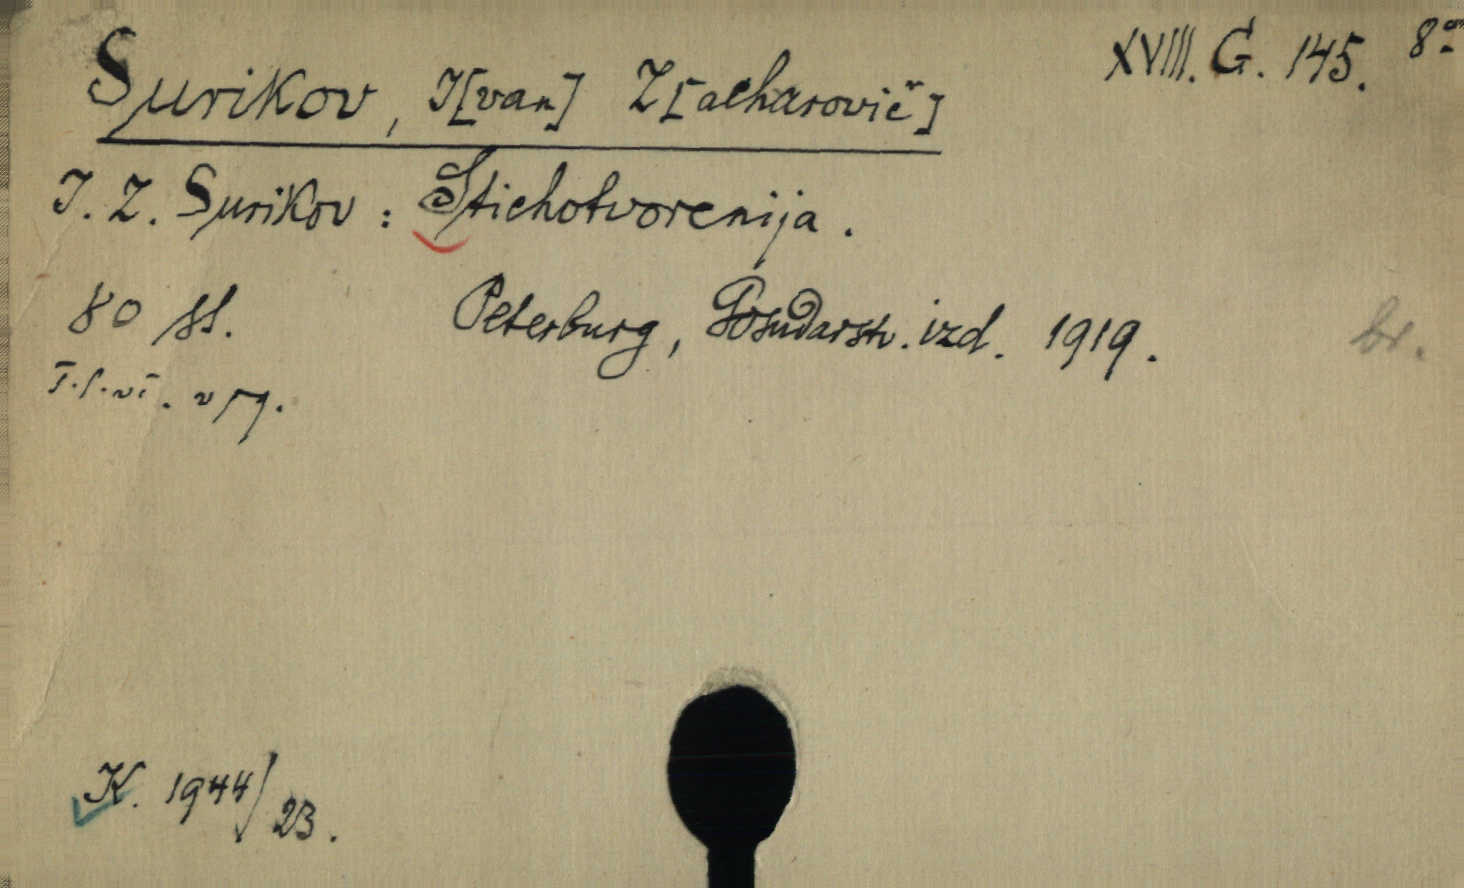 XVIII. G. 145. 8°
Surikov, I[van] Z[acharovič]
I. Z. Surikov: Stichotvorenija.
80 ss. Peterburg, Gosudarstv. izd. 1919. br.
K. 1944/23.